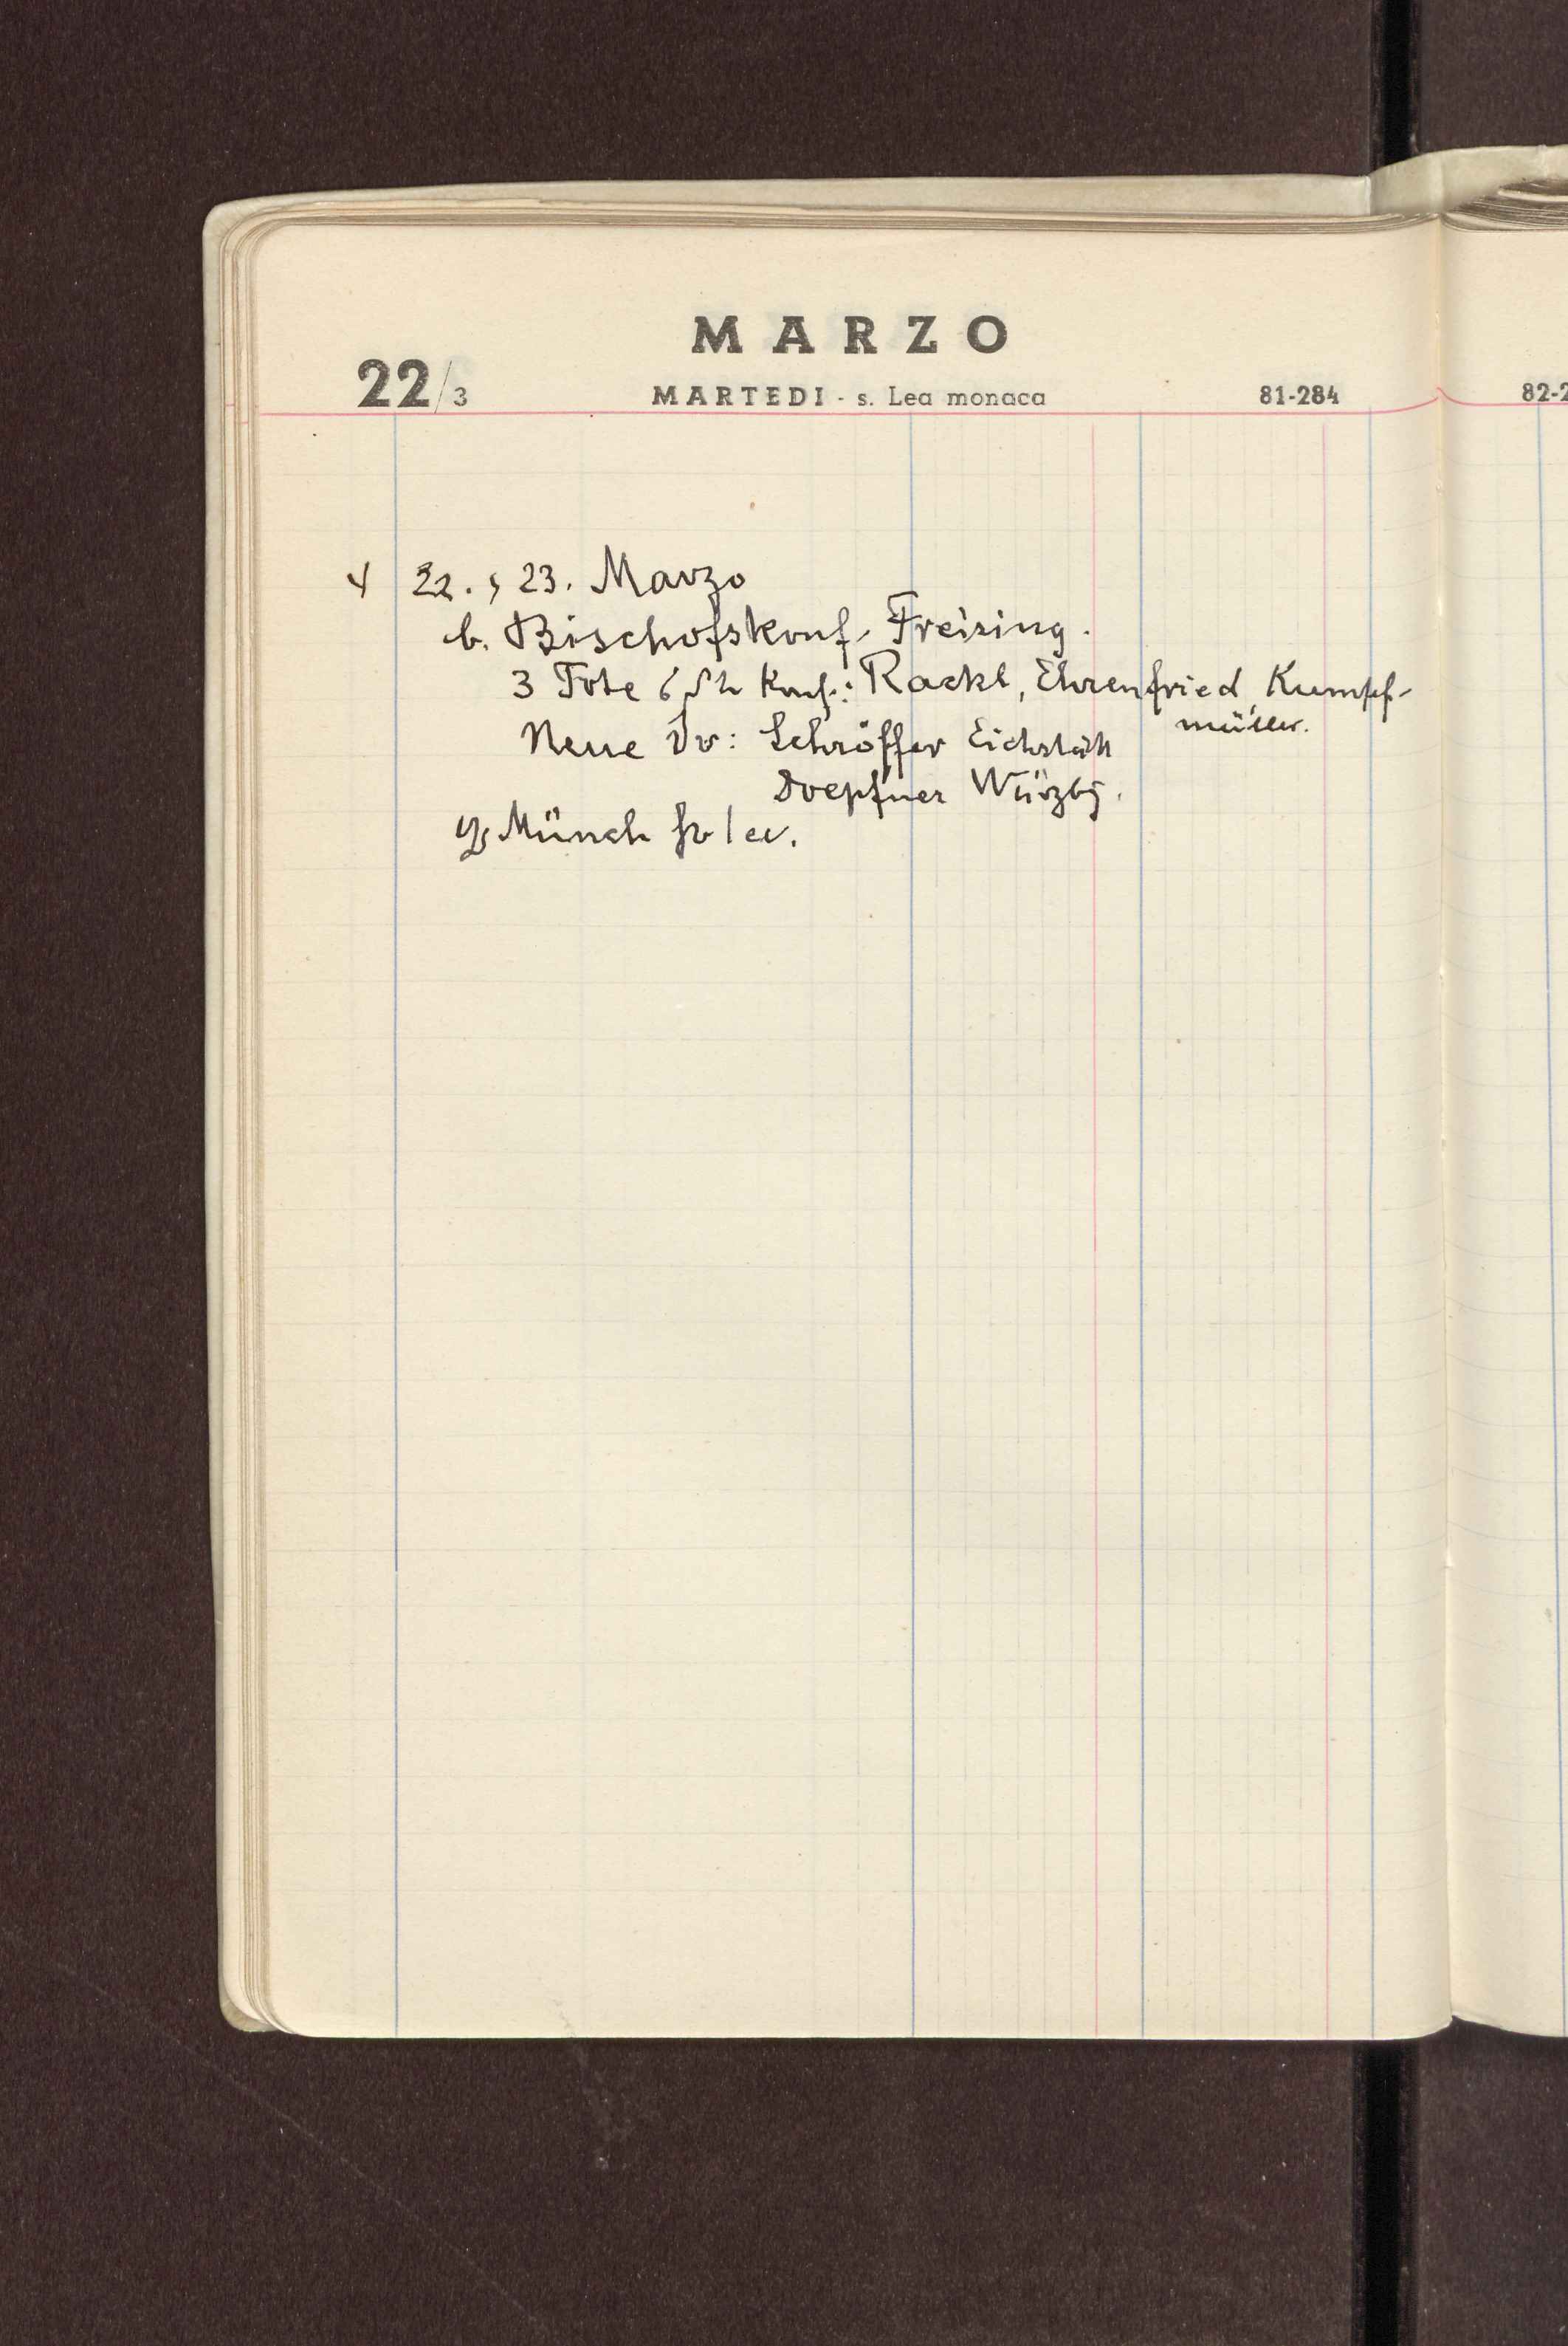 MARZO
22/3 MARTEDI - s. Lea monaca 81-284
82-2
22. , 23. Marzo
b. Bischofskonf. Freising.
3 Tote Konf.: Rackl, Ehrenfried, Kumpf-
müller.
Neue Vr: Schröffer Eichstätt
Doepfner Würzbg.
Münch